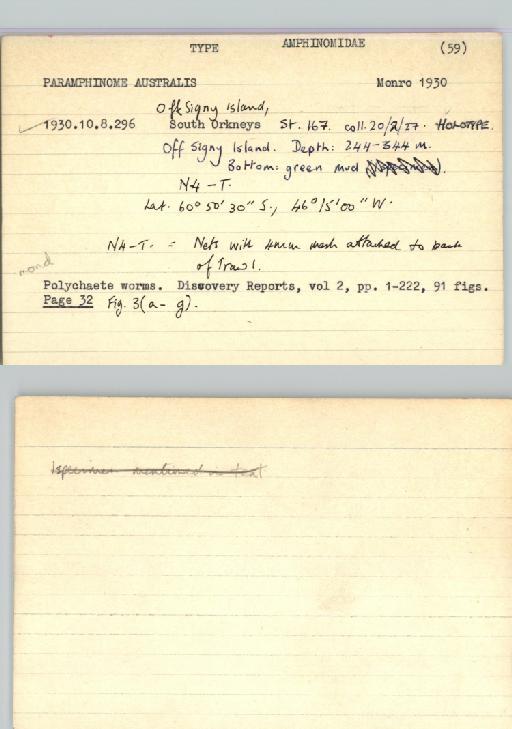 TYPE AMPHINOMIDAE (59)
PARAMPHINOME AUSTRALIS Monro 1930
Off Signy Island,
1930.10.8.296 South Orkneys St. 167. coll. 20/2/27. HOLOTYPE.
Off Signy Island. Depth: 244-344 m.
Bottom: green mud
N4-T.
Lat. 60° 50' 30" S., 46° 15' 00" W.
N4-T. = Nets with 4mm mesh attached to back
of Trawl.
Polychaete worms. Discovery Reports, vol 2, pp. 1-222, 91 figs.
Page 32 Fig. 3(a-g).
1 specimen mentioned in text